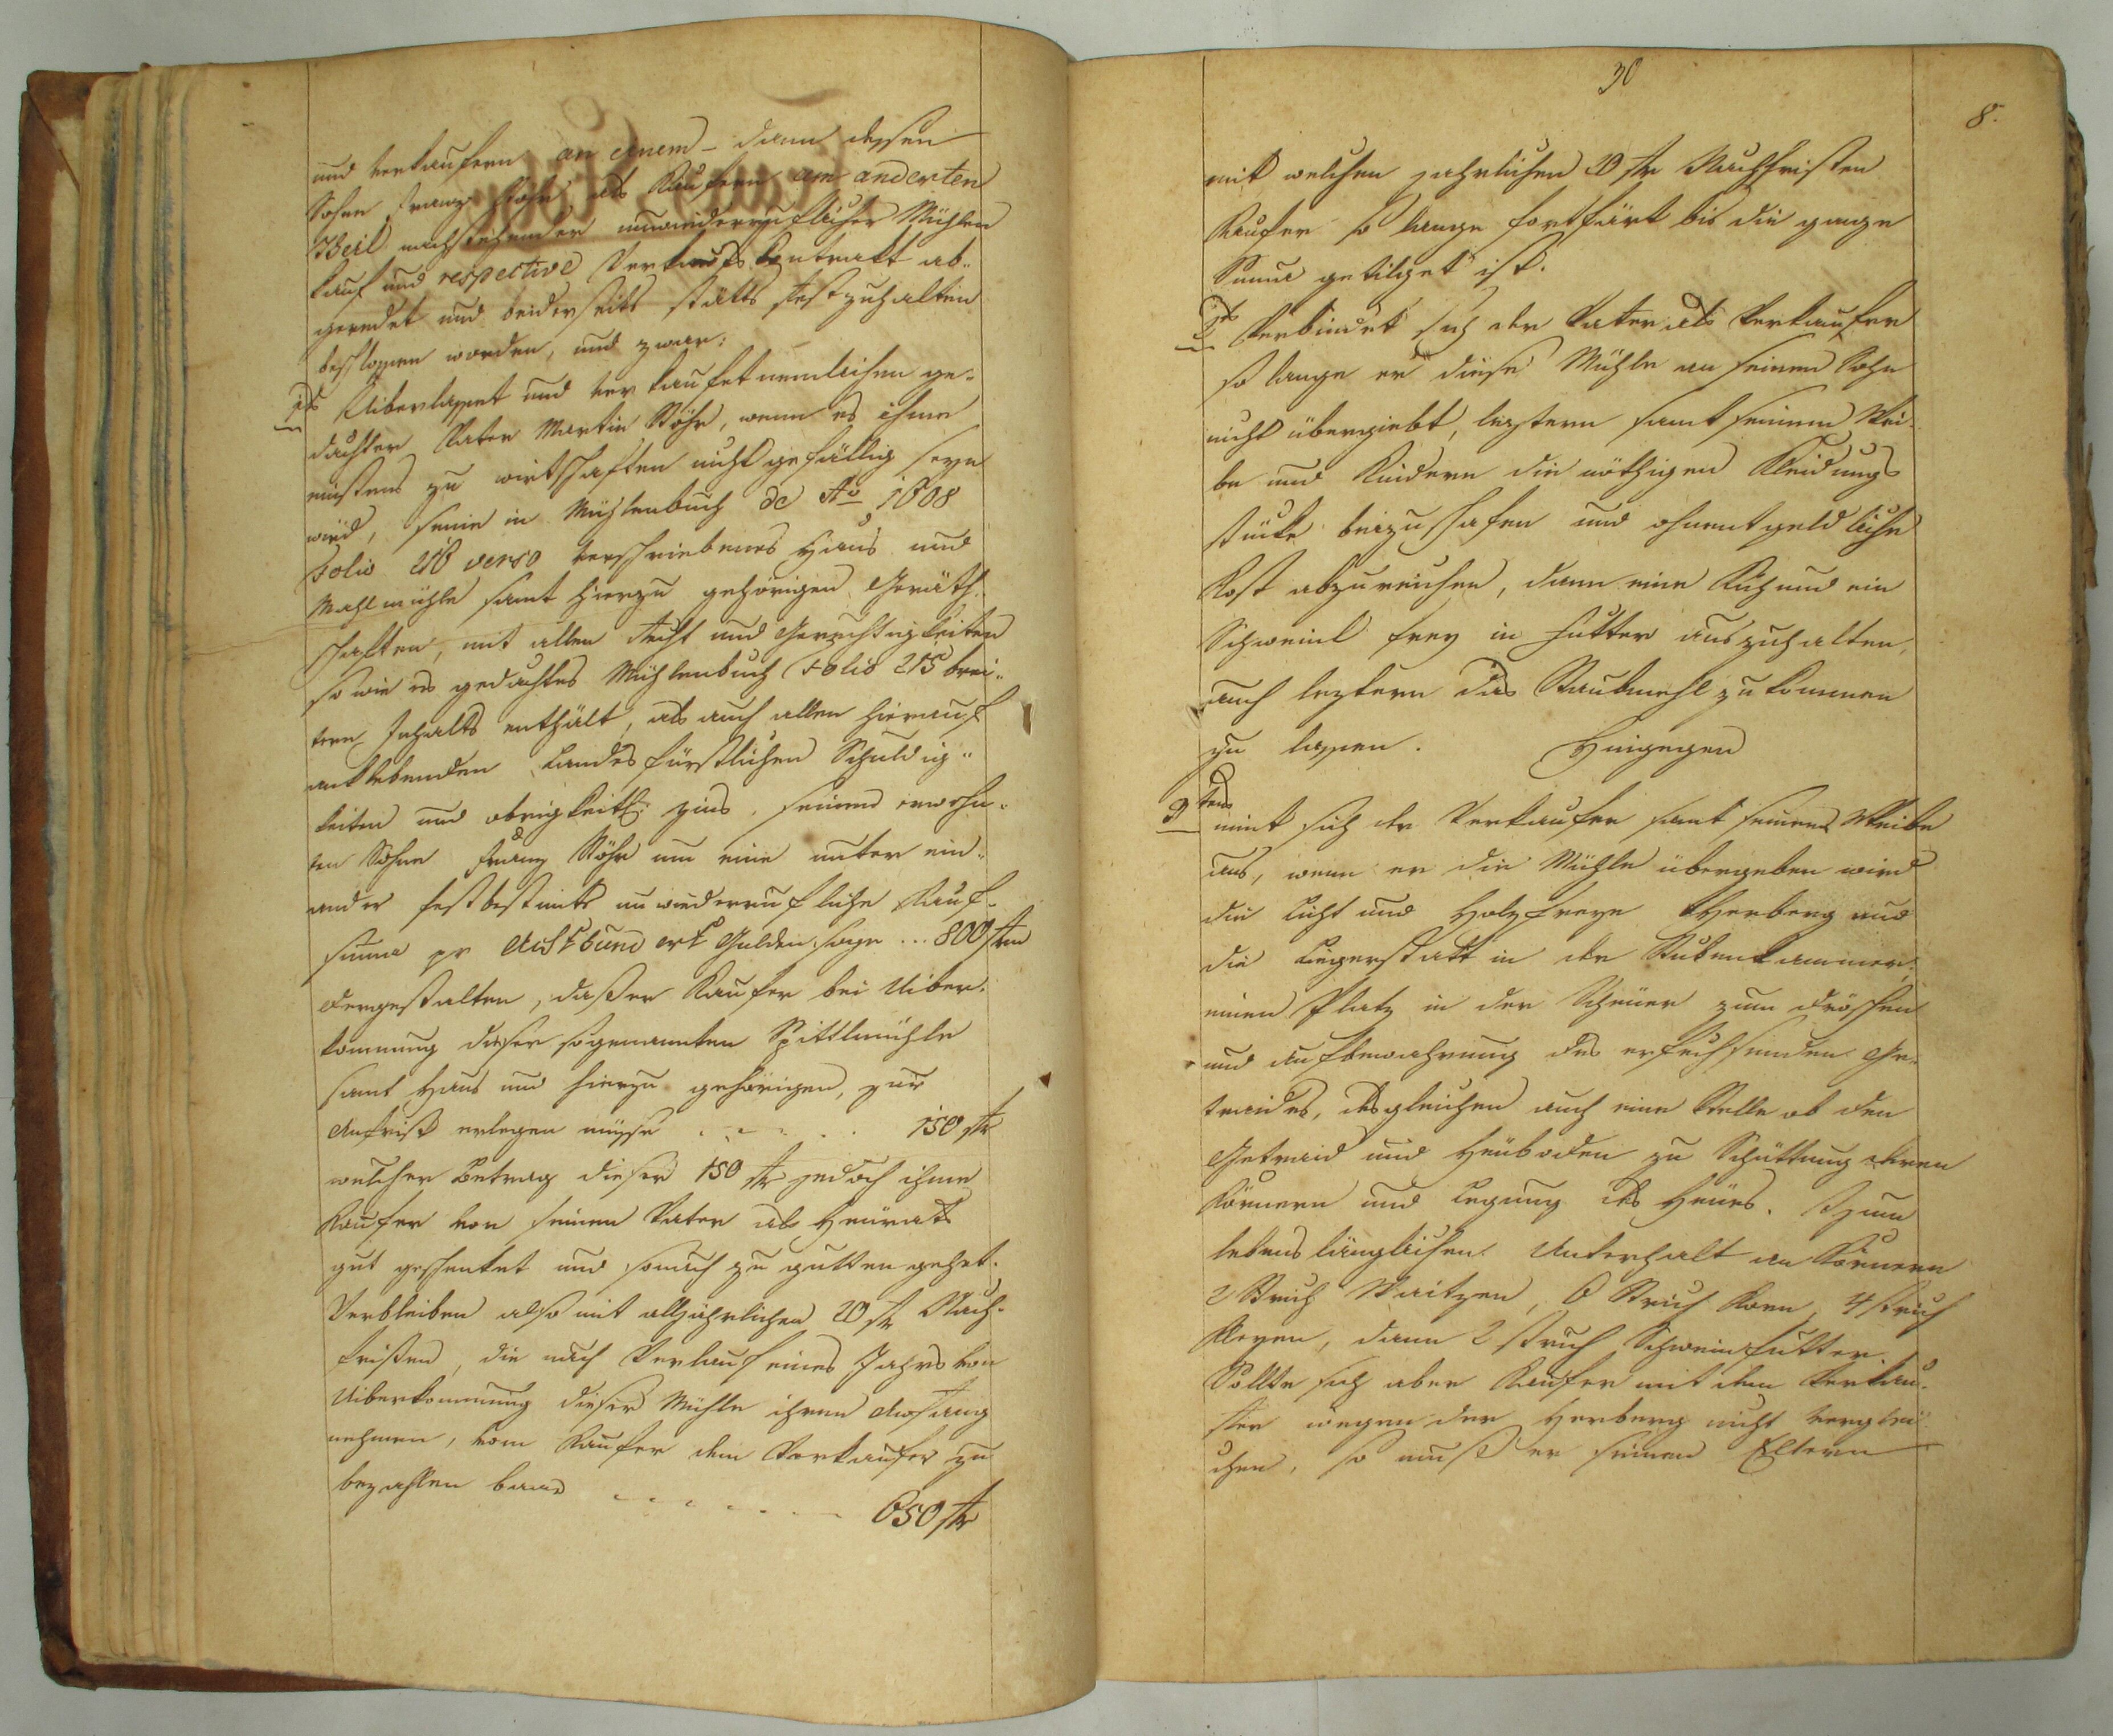 und verkaufern an einem – dann dessen
Sohne Franz Röhr, als Kaufern am anderten
Theil nachstehender unwiederruflicher Mühlen
kauf und respective Verkaufs Contrakt ab-
geredet und beiderseits stätts festzuhalten
beschlossen worden, und zwar:
1tens Uiberlasset und verkaufet nemlichen ge-
dachter Vater Martin Röhr, wenn es ihme
mehrers zu wirtschaften nicht gefällig seyn
wird, seine in Mühlenbuch de Ao 1608
Folio 218 verso verschriebenes Haus und
Mahlmühle samt hierzu gehörigen Geräth-
schaften, mit allen Recht und Gerechtigkeiten
so wie es gedachtes Mühlenbuch Folio 215 brei-
tern Inhalts enthält, als auch allen hierauf
anklebenden Landesfürstlichen Schuldig-
keiten und obrigkeitl: zins, seinem erwehn-
ten Sohne Franz Röhr um eine unter ein-
ander festbestimte unwiederrufliche Kauf-
summa pr Achthundert Gulden sage ... 800 fr
dergestalten, daß er Kaufer bei Uiber-
kommung dieser sogenannten Spittlmühle
samt Haus und hierzu gehörigen, zur
Anfrist erlegen müsse . . . . . 150 fr
welcher Betrag dieser 150 fr jedoch ihme
Kaufer von seinen Vater als Heurats
gut geschenket und sonach zu gutten gehet.
Verbleiben also mit alljährlichen 20 fr Nach-
fristen, die nach Verlauf eines Jahrs von
Uiberkommung dieser Mühle ihren Anfang
nehmen, vom Kaufer dem Verkaufer zu
bezahlen baar . . . . . . 650 fr
30
8.
mit welchen jahrlichen 20 fr Nachfristen
Kaufer so lange fortfärt bis die ganze
Summa getilget ist.
2tens Verbindet sich der Vater als Verkaufer
so lange er diese Mühle an seinem Sohn
nicht übergiebt, leztern samt seinem Wei-
be und Kindern die nöthigen Kleidungs
stücke beizuschafen und ohnentgeldliche
Kost abzureichen, dann eine Kuh und ein
Schweinl frey in Futter auszuhalten,
auch leztern das Staubmehl zukommen
zu lassen. Hingegen
3tens nimt sich der Verkaufer samt seinem Weibe
aus, wenn er die Mühle übergeben wird
die Licht und Holzfreye Herberg und
die Liegerstatt in der Stubenkammer,
einen Platz in der Scheuer zum dröschen
und Aufbewahrung des erfechsenden Ge-
traides, desgleichen auch eine Stelle ob den
Getraid und Heuboden zu Schüttung ihren
Körnern und Legung des Heues. Zum
lebenslänglichen Unterhalt an Körnern
2 Strich Waitzen, 6 Strich Korn, 4 Strich
Gersten, dann 2 Strich Schweinfutter.
Sollte sich aber Kaufer mit dem Verkau-
fer wegen der Herberg nicht verglei-
chen, so muß er seinen Eltern